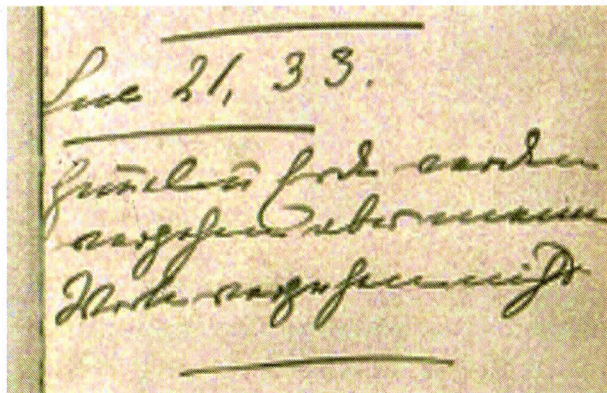 Luc 21, 33.
Himel u Erde werden
vergehen aber meine
Worte vergehen nicht